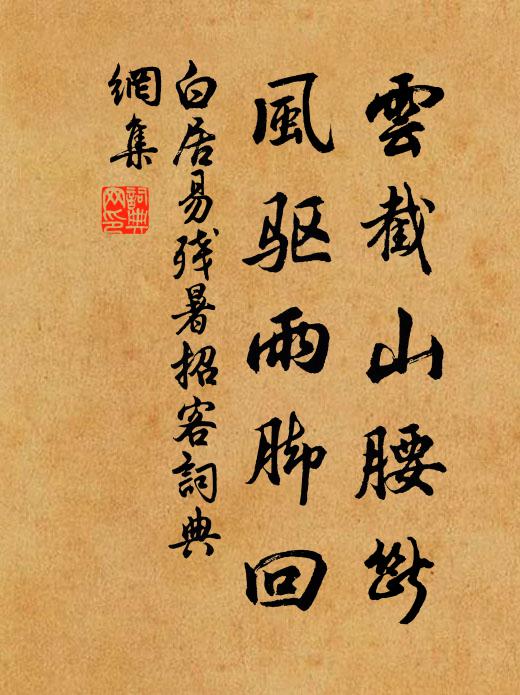 雲截山腰斷
風驱雨脚回
白居易残暑招客詞典
網集
詞典
网印